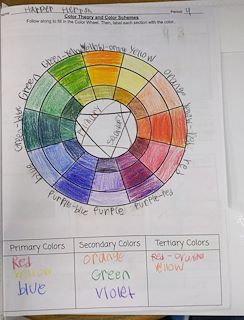 Harper
Period: 4
Color Theory and Color Schemes
Follow along to fill in the Color Wheel. Then, label each section with the color.
Green
Green-Yellow
Yellow-orange
Yellow
orange
red
purple-red
purple
purple-blue
blue
Green-blue
Primary Colors
Secondary Colors
Tertiary Colors
Red
Yellow
blue
orange
Green
Violet
Red-orange
Yellow